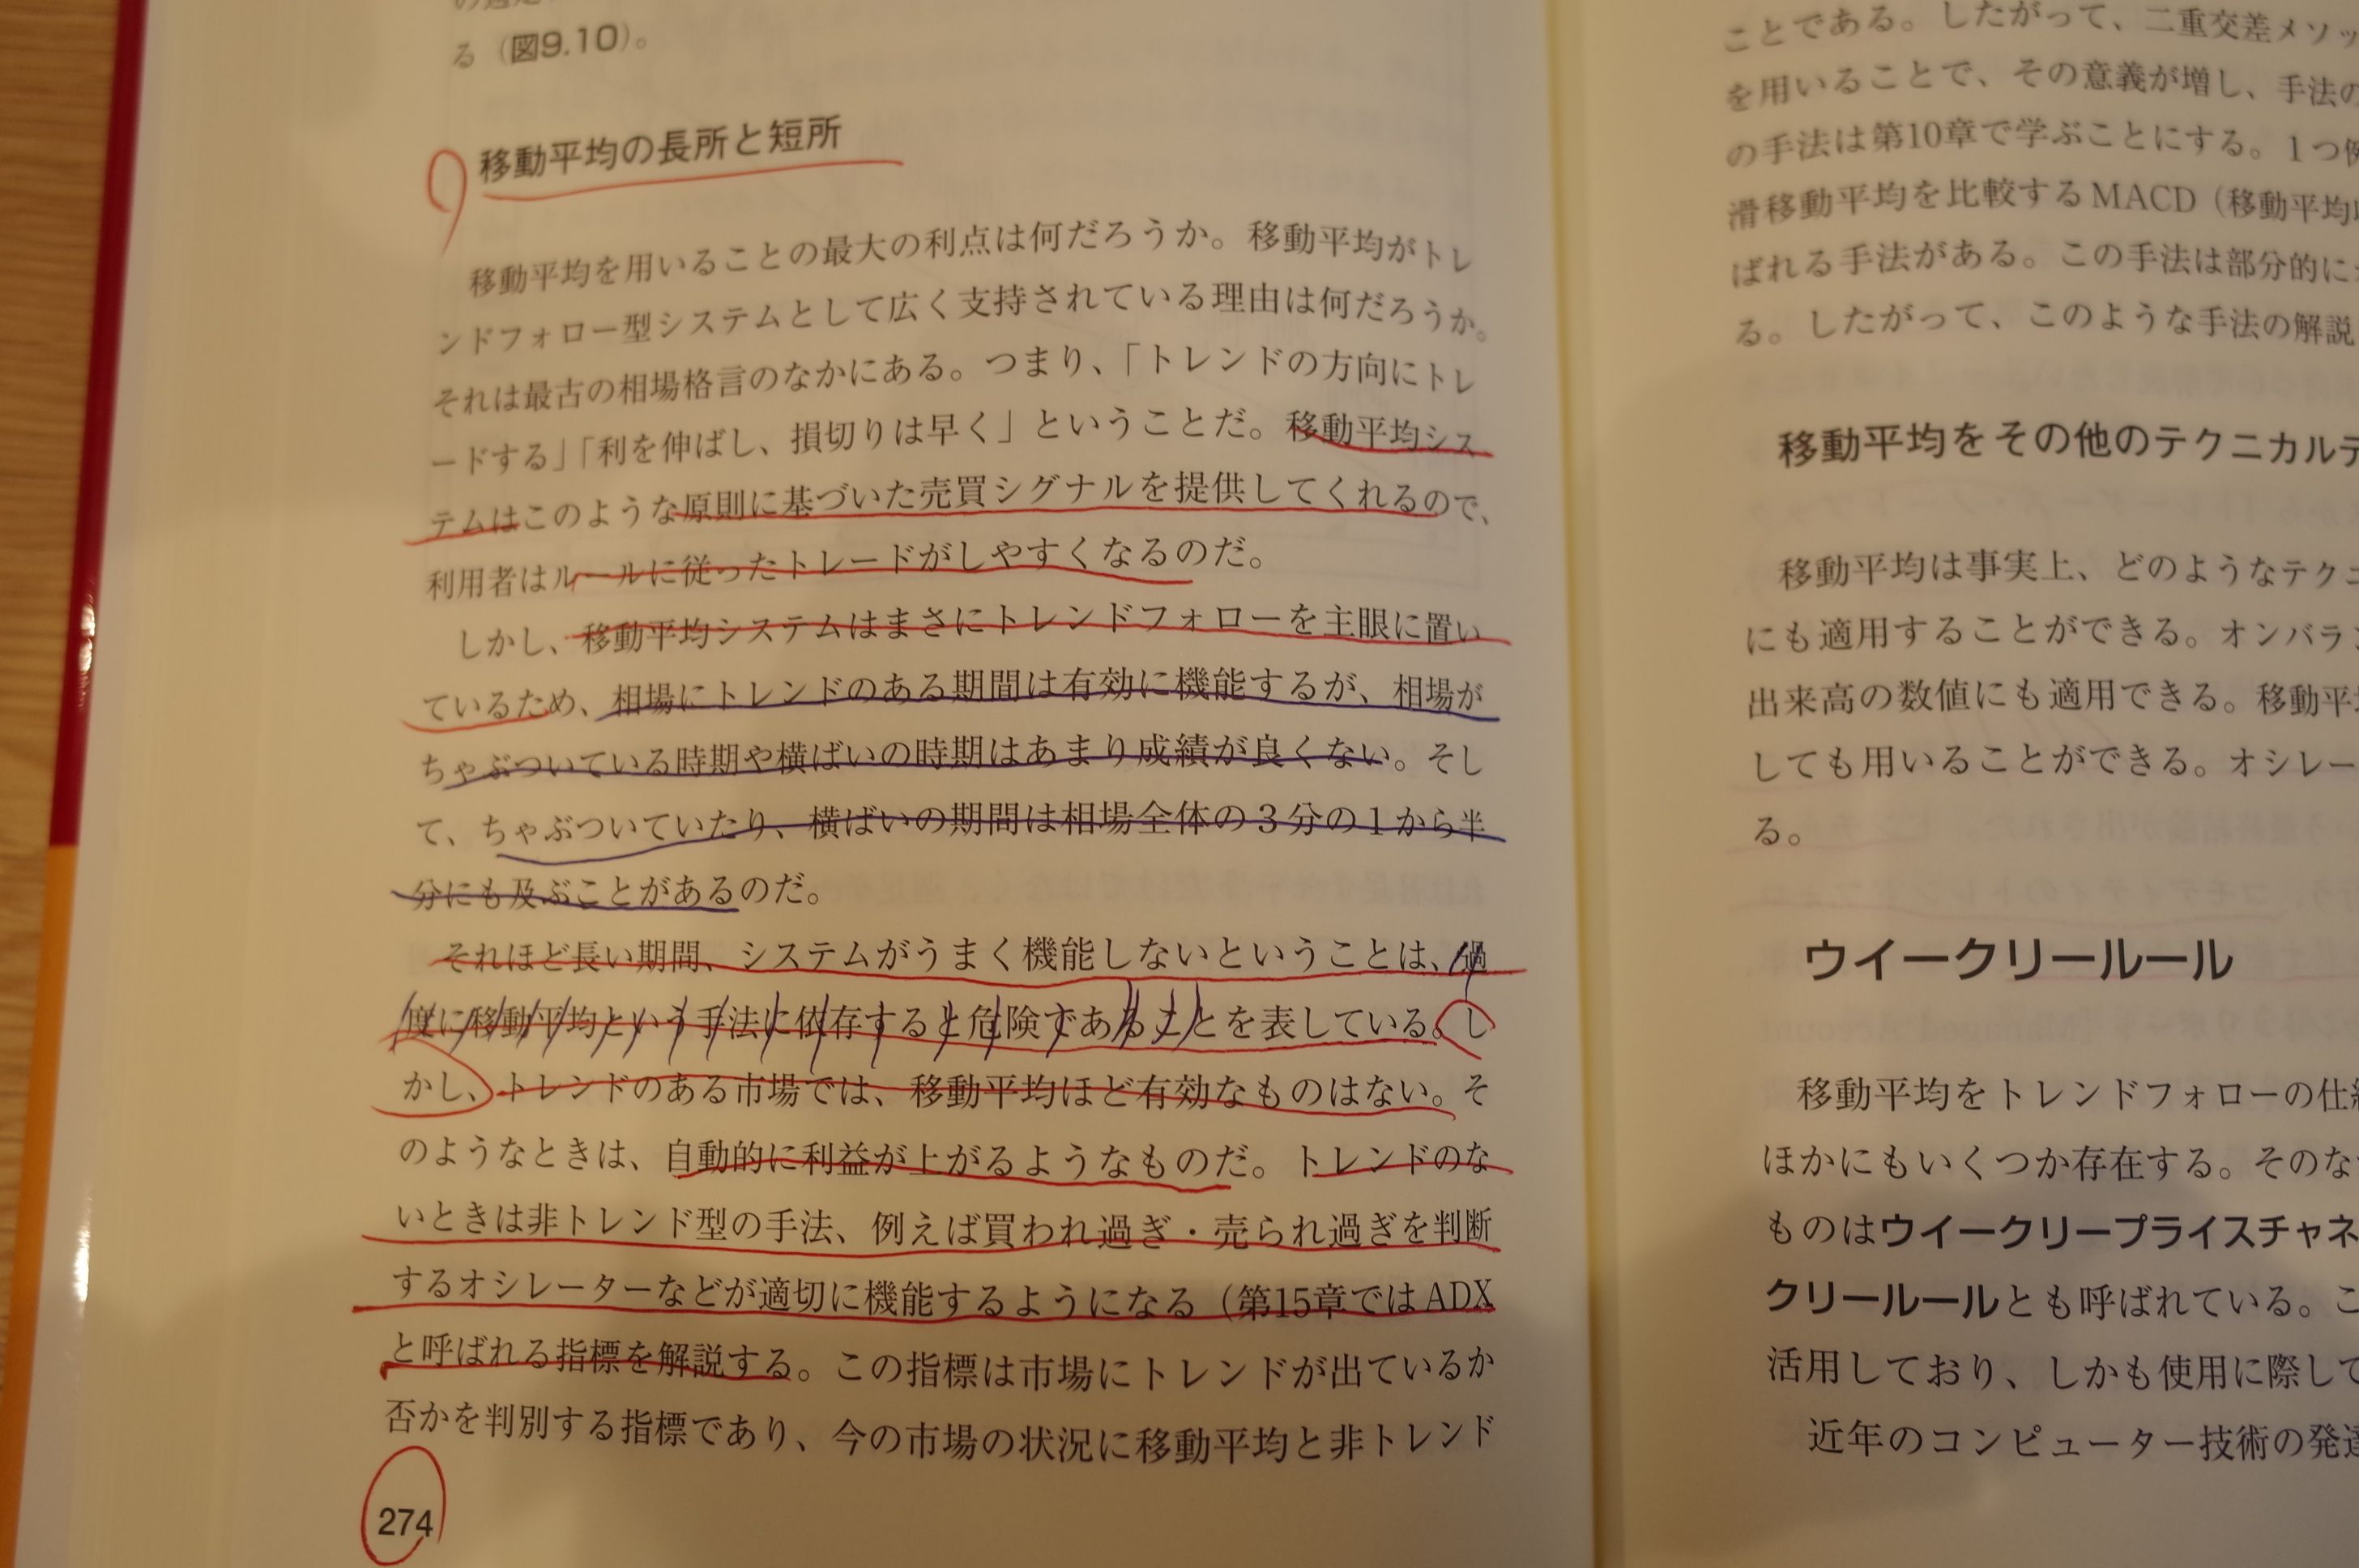 る（図9.10）。
移動平均の長所と短所
移動平均を用いることの最大の利点は何だろうか。移動平均がトレ
ンドフォロー型システムとして広く支持されている理由は何だろうか。
それは最古の相場格言のなかにある。つまり、「トレンドの方向にトレ
ードする」「利を伸ばし、損切りは早く」ということだ。移動平均シス
テムはこのような原則に基づいた売買シグナルを提供してくれるので、
利用者はルールに従ったトレードがしやすくなるのだ。
しかし、移動平均システムはまさにトレンドフォローを主眼に置い
ているため、相場にトレンドのある期間は有効に機能するが、相場が
ちゃぶついている時期や横ばいの時期はあまり成績が良くない。そし
て、ちゃぶついていたり、横ばいの期間は相場全体の３分の１から半
分にも及ぶことがあるのだ。
それほど長い期間、システムがうまく機能しないということは、過
度に移動平均という手法に依存すると危険であることを表している。し
かし、トレンドのある市場では、移動平均ほど有効なものはない。そ
のようなときは、自動的に利益が上がるようなものだ。トレンドのな
いときは非トレンド型の手法、例えば買われ過ぎ・売られ過ぎを判断
するオシレーターなどが適切に機能するようになる（第15章ではADX
と呼ばれる指標を解説する。この指標は市場にトレンドが出ているか
否かを判別する指標であり、今の市場の状況に移動平均と非トレンド
274
ことである。したがって、二重交差メソッ
を用いることで、その意義が増し、手法の
の手法は第10章で学ぶことにする。１つ例
滑移動平均を比較するMACD（移動平均収
ばれる手法がある。この手法は部分的に
る。したがって、このような手法の解説
移動平均をその他のテクニカルデ
移動平均は事実上、どのようなテクニ
にも適用することができる。オンバラン
出来高の数値にも適用できる。移動平均
しても用いることができる。オシレー
る。
ウイークリールール
移動平均をトレンドフォローの仕組
ほかにもいくつか存在する。そのな
ものはウイークリープライスチャネ
クリールールとも呼ばれている。こ
活用しており、しかも使用に際して
近年のコンピューター技術の発達